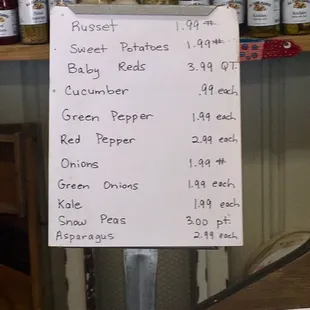 Russet 1.99 #
Sweet Potatoes 1.99 #
Baby Reds 3.99 QT.
Cucumber .99 each
Green Pepper 1.99 each
Red Pepper 2.99 each
Onions 1.99 #
Green Onions 1.99 each
Kale 1.99 each
Snow Peas 3.00 pt.
Asparagus 2.99 each